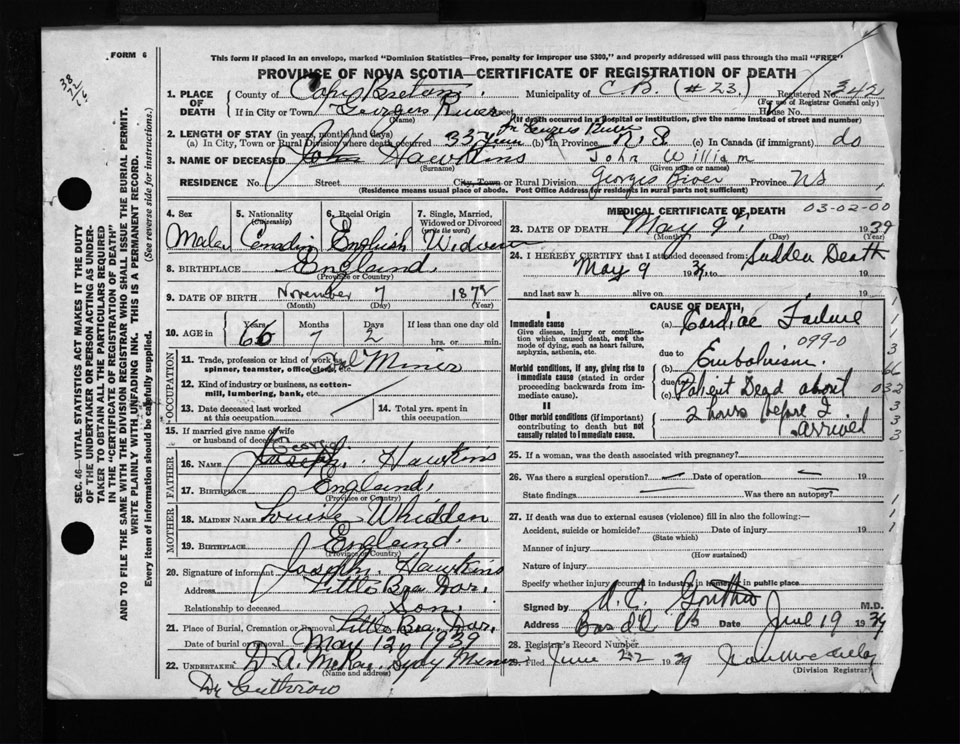 FORM 6
38
22
16
This form if placed in an envelope, marked "Dominion Statistics—Free, penalty for improper use $300," and properly addressed will pass through the mail "FREE"
PROVINCE OF NOVA SCOTIA—CERTIFICATE OF REGISTRATION OF DEATH
1. PLACE OF DEATH
County of Cape Breton Municipality of C.B. (#23.) Registered No. 342
(For use of Registrar General only)
If in City or Town Georges River Street House No.
(Name) (If death occurred in a Hospital or Institution, give the name instead of street and number)
2. LENGTH OF STAY (in years, months and days) Georges River
(a) In City, Town or Rural Division where death occurred 33 years (b) In Province N.S. (c) In Canada (if immigrant) do
3. NAME OF DECEASED John Hawkins John William
(Surname) (Given name or names)
RESIDENCE No. Street City, Town or Rural Division Georges River Province NS
(Residence means usual place of abode. Post Office Address for residents in rural parts not sufficient)
SEC. 46—VITAL STATISTICS ACT MAKES IT THE DUTY
OF THE UNDERTAKER OR PERSON ACTING AS UNDER-
TAKER TO OBTAIN ALL THE PARTICULARS REQUIRED
IN THE "CERTIFICATE OF REGISTRATION OF DEATH"
AND TO FILE THE SAME WITH THE DIVISION REGISTRAR WHO SHALL ISSUE THE BURIAL PERMIT.
WRITE PLAINLY WITH UNFADING INK. THIS IS A PERMANENT RECORD.
Every item of information should be carefully supplied. (See reverse side for instructions.)
4. Sex 5. Nationality (Citizenship) 6. Racial Origin 7. Single, Married, Widowed or Divorced (write the word)
Male Canadin English Widower
8. BIRTHPLACE England.
(Province or Country)
9. DATE OF BIRTH November 7 1872
(Month) (Day) (Year)
10. AGE in Years Months Days If less than one day old
66 7 2 hrs. or min.
OCCUPATION
11. Trade, profession or kind of work as spinner, teamster, office clerk, etc. Coal Miner
12. Kind of industry or business, as cotton-mill, lumbering, bank, etc.
13. Date deceased last worked at this occupation
14. Total yrs. spent in this occupation
15. If married give name of wife or husband of deceased
FATHER
George
16. NAME Joseph. Hawkins
17. BIRTHPLACE England.
(Province or Country)
MOTHER
18. MAIDEN NAME Louise Whidden
19. BIRTHPLACE England.
(Province or Country)
20. Signature of informant Joseph. Hawkins
Address Little Bra Dor.
Relationship to deceased Son.
21. Place of Burial, Cremation or Removal Little Bra Dor.
Date of burial or removal May 12 1939
22. UNDERTAKER D. A. McKay. Sydy Mines
(Name and address)
Dr Guthrow
MEDICAL CERTIFICATE OF DEATH 03-02-00
23. DATE OF DEATH May 9, 1939
(Month) (Day) (Year)
24. I HEREBY CERTIFY that I attended deceased from: Sudden Death
May 9 1939 to 19
and last saw h alive on 19
CAUSE OF DEATH,
I
Immediate cause
Give disease, injury or complication which caused death, not the mode of dying, such as heart failure, asphyxia, asthenia, etc.
(a) Cardiac Failure
099-0
due to
Morbid conditions, if any, giving rise to immediate cause (stated in order proceeding backwards from immediate cause).
(b) Embolism.
due to
(c) Patient Dead about
2 hours before I
arrived
II
Other morbid conditions (if important) contributing to death but not causally related to immediate cause.
1
1
3
66
032
3
3
3
25. If a woman, was the death associated with pregnancy?
26. Was there a surgical operation? Date of operation 19
State findings Was there an autopsy?
27. If death was due to external causes (violence) fill in also the following:—
Accident, suicide or homicide? Date of injury 19
(State which)
Manner of injury
(How sustained)
Nature of injury
Specify whether injury occurred in industry, in home or in public place
1
1
1
Signed by A. C. Guthro M.D.
Address Bras d'Or CB Date June 19 1939
28. Registrar's Record Number
Filed June 22 1939
(Division Registrar)